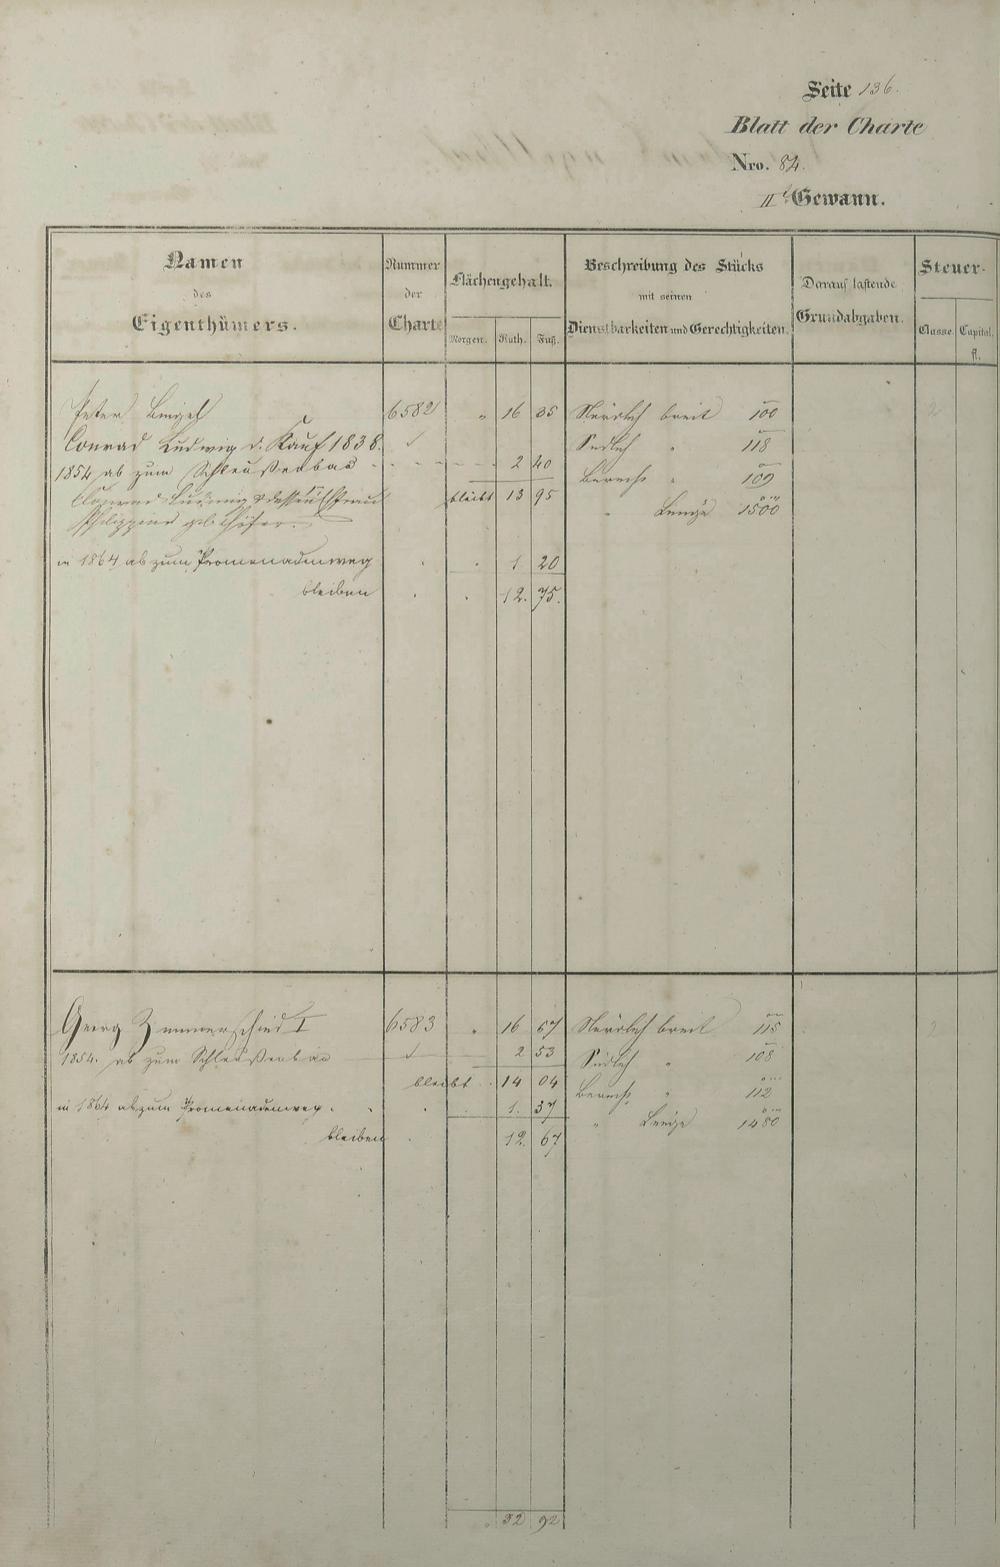 Seite 136.
Blatt der Charte
Nro. 84.
IIt Gewann.
Namen des Eigenthümers.
Nummer der Charte
Flächengehalt.
Morgen. Ruth. Fuß.
Beschreibung des Stücks mit seinen Dienstbarkeiten und Gerechtigkeiten.
Darauf lastende Grundabgaben.
Steuer-
Classe. Capital. fl.
Peter Bingel 6582 " 16 35 Nördlich breit 100
Conrad Ludwig d. Kauf 1838. Südlich " 118
1854 ab zum Schleußenbau 2 40 Berech. " 109
Conrad Ludwig & dessen Ehefrau bleibt 13 95
Philippine geb. Höfer. " Länge 1500
in 1864 ab zum Promenadenweg 1 20
bleiben 12. 75.
Georg Zimmerschied I 6583 " 16 57 Nördlich breit 115
1854. ab zum Schleußenbau 2 53 Südlich " 108
bleibt 14 04 Berech. " 112
in 1864 ab zum Promenadenweg. 1. 37 " Länge 1480
bleiben 12. 67
32 92